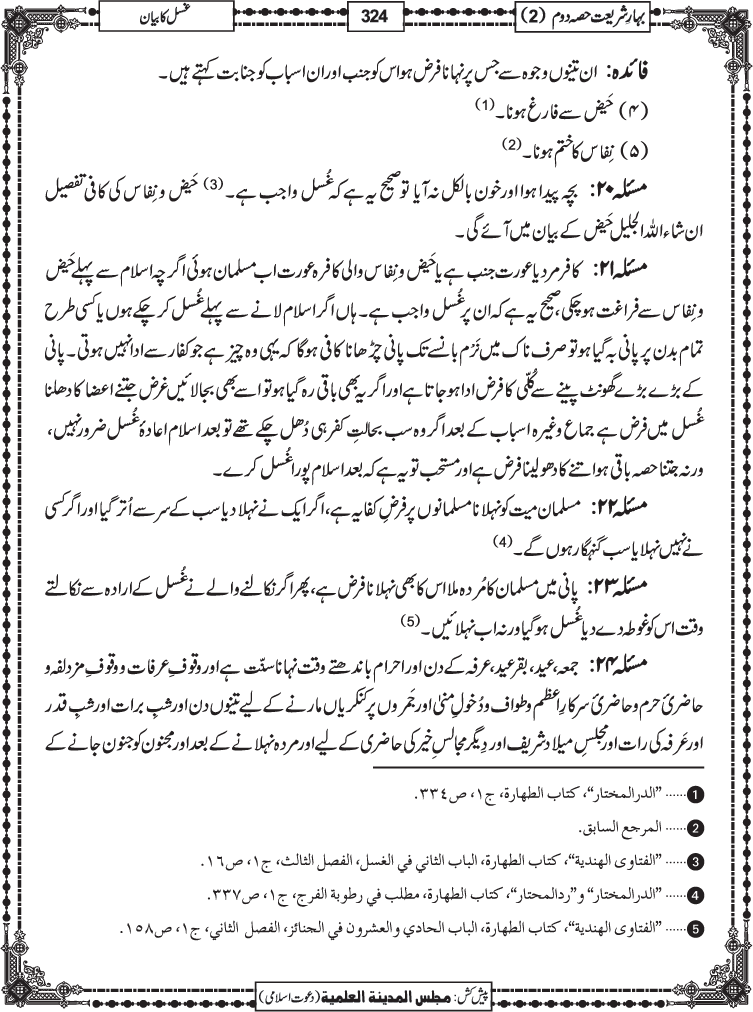 بہارِ شریعت حصہ دوم (2)
324
غسل کا بیان
فائدہ: ان تینوں وجوہ سے جس پر نہانا فرض ہو اس کو جنب اور ان اسباب کو جنابت کہتے ہیں۔
(۴) حَیض سے فارغ ہونا۔(1)
(۵) نِفاس کا ختم ہونا۔(2)
مسئلہ ۲۰: بچہ پیدا ہوا اور خون بالکل نہ آیا تو صحیح یہ ہے کہ غُسل واجب ہے۔(3) حَیض و نِفاس کی کافی تفصیل
ان شاء اللہ الجلیل حَیض کے بیان میں آئے گی۔
مسئلہ ۲۱: کافر مرد یا عورت جنب ہے یا حَیض و نِفاس والی کافرہ عورت اب مسلمان ہوئی اگرچہ اسلام سے پہلے حَیض
و نِفاس سے فراغت ہو چکی، صحیح یہ ہے کہ ان پر غُسل واجب ہے۔ ہاں اگر اسلام لانے سے پہلے غُسل کر چکے ہوں یا کسی طرح
تمام بدن پر پانی بہ گیا ہو تو صرف ناک میں نَرْم بانسے تک پانی چڑھانا کافی ہوگا کہ یہی وہ چیز ہے جو کفار سے ادا نہیں ہوتی۔ پانی
کے بڑے بڑے گھونٹ پینے سے کُلّی کا فرض ادا ہو جاتا ہے اور اگر یہ بھی باقی رہ گیا ہو تو اسے بھی بجا لائیں غرض جتنے اعضا کا دھلنا
غُسل میں فرض ہے جماع وغیرہ اسباب کے بعد اگر وہ سب بحالتِ کفر ہی دُھل چکے تھے تو بعد اسلام اعادۂ غُسل ضرور نہیں،
ورنہ جتنا حصہ باقی ہو اتنے کا دھو لینا فرض ہے اور مستحب تو یہ ہے کہ بعد اسلام پورا غُسل کرے۔
مسئلہ ۲۲: مسلمان میت کو نہلانا مسلمانوں پر فرضِ کفایہ ہے، اگر ایک نے نہلا دیا سب کے سر سے اُتر گیا اور اگر کسی
نے نہیں نہلایا سب گنہگار ہوں گے۔(4)
مسئلہ ۲۳: پانی میں مسلمان کا مُردہ ملا اس کا بھی نہلانا فرض ہے، پھر اگر نکالنے والے نے غُسل کے ارادہ سے نکالتے
وقت اس کو غوطہ دے دیا غُسل ہو گیا ورنہ اب نہلائیں۔(5)
مسئلہ ۲۴: جمعہ، عید، بقرعید، عرفہ کے دن اور احرام باندھتے وقت نہانا سنّت ہے اور وقوفِ عرفات و وقوفِ مزدلفہ و
حاضریٔ حرم و حاضریٔ سرکارِ اعظم و طواف و دُخولِ منیٰ اور جَمروں پر کنکریاں مارنے کے لیے تینوں دن اور شبِ برات اور شبِ قدر
اور عَرفہ کی رات اور مجلسِ میلاد شریف اور دِیگر مجالسِ خیر کی حاضری کے لیے اور مردہ نہلانے کے بعد اور مجنون کو جنون جانے کے
1 ...... ”الدرالمختار“، كتاب الطهارة، ج۱، ص۳۳٤.
2 ...... المرجع السابق.
3 ...... ”الفتاوى الهندية“، كتاب الطهارة، الباب الثاني في الغسل، الفصل الثالث، ج۱، ص۱٦.
4 ...... ”الدرالمختار“ و”ردالمحتار“، كتاب الطهارة، مطلب في رطوبة الفرج، ج۱، ص۳۳۷.
5 ...... ”الفتاوى الهندية“، كتاب الطهارة، الباب الحادي والعشرون في الجنائز، الفصل الثاني، ج۱، ص۱٥۸.
پیش کش: مجلس المدينة العلمية (دعوتِ اسلامی)